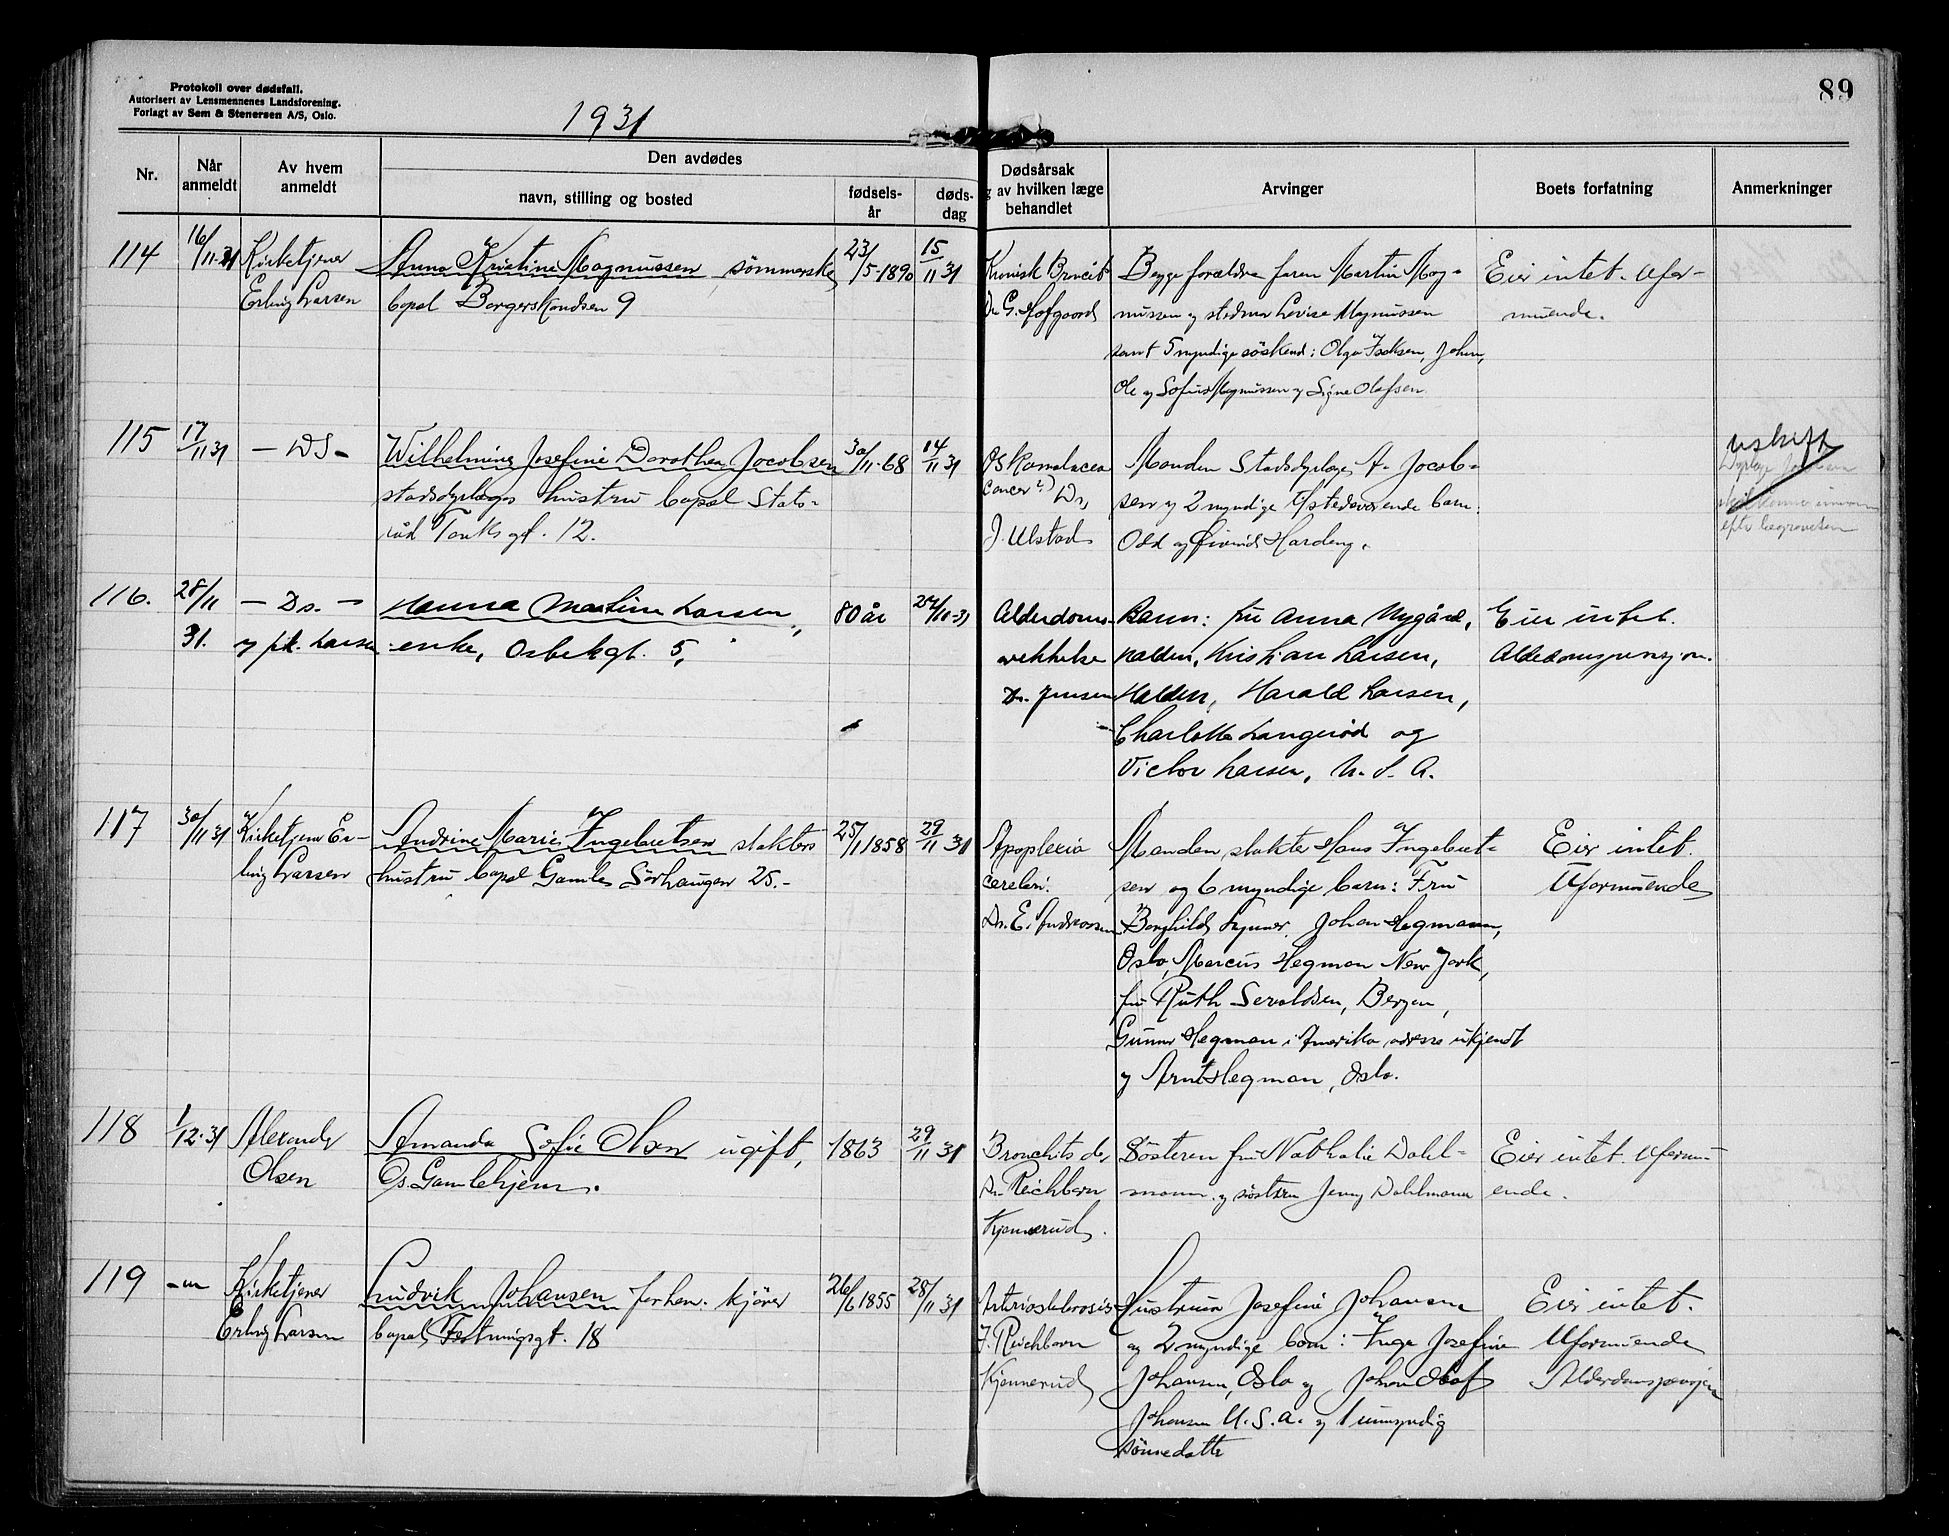 Protokoll over dødsfall.
Autorisert av Lensmennenes Landsforening.
Forlagt av Sem & Stenersen A/S, Oslo.
1931
89
Nr.
Når anmeldt
Av hvem anmeldt
Den avdødes
navn, stilling og bosted
fødsels-år
døds-dag
Dødsårsak
av hvilken læge
behandlet
Arvinger
Boets forfatning
Anmerkninger
114
16/11-31
Kirketjener
Erling Larsen
Anna Kristine Magnussen sömmerske
bopæl Borgerskandsen 9
23/5-1890
15/11 31
Kronisk
Dr. G. Hofgaard
Begge forældre faren Martin Mag-
nussen og stedmor Lovise Magnussen
samt 5 myndige söskend: Olga Isaksen, Johan,
Ole og Sofus Magnussen og Signe Olafsen
Eier intet. Ufor-
muende.
115
17/11 31
- DS -
Wilhelmine Josefine Dorothea Jacobsen
stadsdyrlæges hustru bopæl Stats-
råd Tanks gt. 12.
30/11-68
14/11 31
Cancer ?) Dr.
J. Ulstad
Manden Stadsdyrlæge A. Jacob-
sen og 2 myndige tilstedeværende barn:
Odd og Øivind Hardeng.
Uskift
efter begravelsen
116.
28/11 31.
- Ds. -
og frk. Larsen
Hanna Martine Larsen,
enke, Osbekgt. 5,
80 år
24/10-31
Alderdoms-
svekkelse
Dr. Jensen
Barn: fru Anna Nygård,
Halden, Kristian Larsen,
Halden, Harald Larsen,
Charlotte Langerød og
Victor Larsen, U. S. A.
Eier intet.
Alderdomspensjon.
117
30/11 31
Kirketjener Er-
ling Larsen
Andrine Marie Ingebretsen slakters
hustru bopæl Gamle Sörhaugen 25.-
25/1 1858
29/11 31
Apoplexia
cerebri.
Dr. E. Andreassen
Manden slakter Hans Ingebret-
sen og 6 myndige barn: Fru
Borghild Johan Hegmann,
Oslo, Marcus Hegman New York,
fru Ruth Sevaldsen, Bergen,
Gunnar Hegman i Amerika adresse ukjendt
og Arnt Hegman, Oslo.
Eier intet.
Uformuende
118
1/12-31
Alexander
Olsen
Amanda Sofie Olsen ugift,
Gs. Gamlehjem.
1863
29/11 31
Dr. Reichborn
Kjennerud.
Søsteren fru Nathalie Dahl-
mann. og søsteren Jenny Dahlmann
Eier intet. Uformu-
ende.
119
- " -
Kirketjener
Erling Larsen
Ludvik Johansen forhen. kjörer
bopæl Festningsgt. 18
26/6 1855
28/11 31
Arteriosklerosis
J. Reichborn
Kjennerud
Hustruen Josefine Johansen
og 2 myndige barn: Inga Josefine
Johansen, Oslo og Johan Olaf
Johansen U. S. A. og 1 umyndig
sönnedatter
Eier intet.
Uformuende
Alderdomspensjon